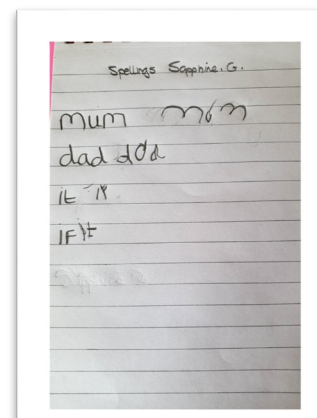 Spellings Sapphire. G.
mum mum
dad dad
it it
IF It